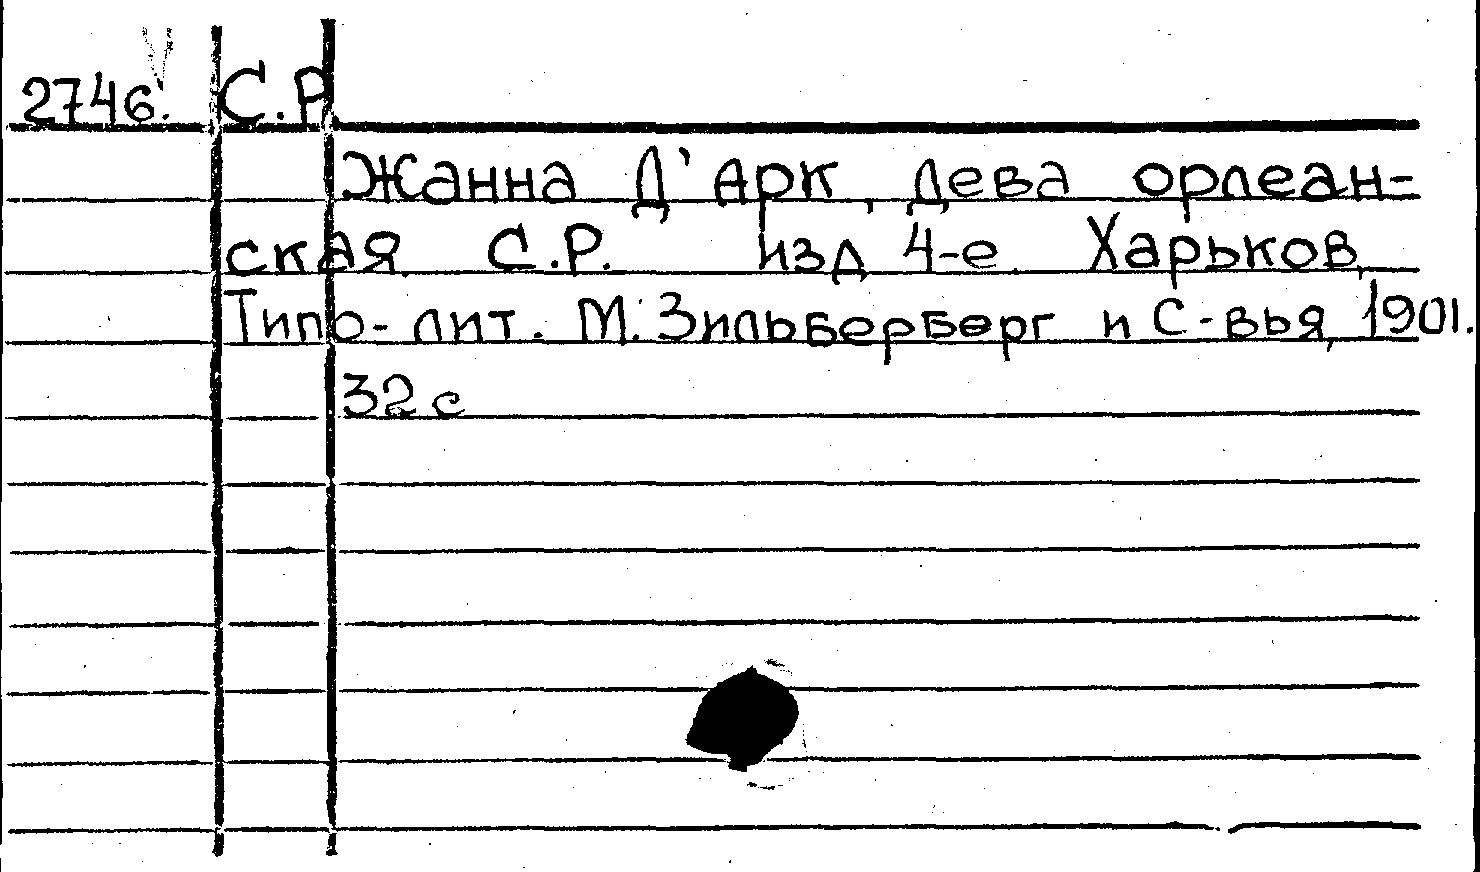 2746. С.Р
Жанна Д'Арк, дева орлеан-
ская. С.Р. изд 4-е. Харьков,
Типо-лит. М. Зильберберг и С-вья, 1901.
32 с